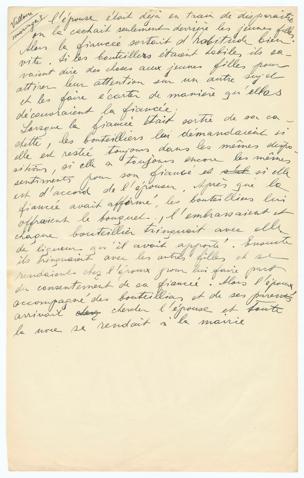 l'épouse était déjà en train de disparaître
on la cachait seulement derrière les jeunes filles
Alors la fiancée sortait d'habitude bien
vite. Si les bouteilliers étaient habiles, ils sa-
vaient dire des choses aux jeunes filles pour
attirer leur attention sur un autre sujet
et les faire écarter de manière qu'elles
découvraient la fiancée.
Lorsque la fiancée était sortie de sa ca-
chette, les bouteilliers lui demandaient si
elle est restée toujours dans les mêmes dispo-
sitions, si elle a toujours encore les mêmes
sentiments pour son fiancé et si elle
est d'accord de l'épouser. Après que la
fiancée avait affirmé, les bouteilliers lui
offraient le bouquet, l'embrassaient et
chaque bouteillier trinquait avec elle
de liqueur qu'il avait apporté. Ensuite
ils trinquaient avec les autres filles et se
rendaient chez l'époux pour lui faire part
du consentement de sa fiancée. Alors l'époux
accompagné des bouteilliers et de ses parents
arrivait chercher l'épouse et toute
la noce se rendait à la mairie